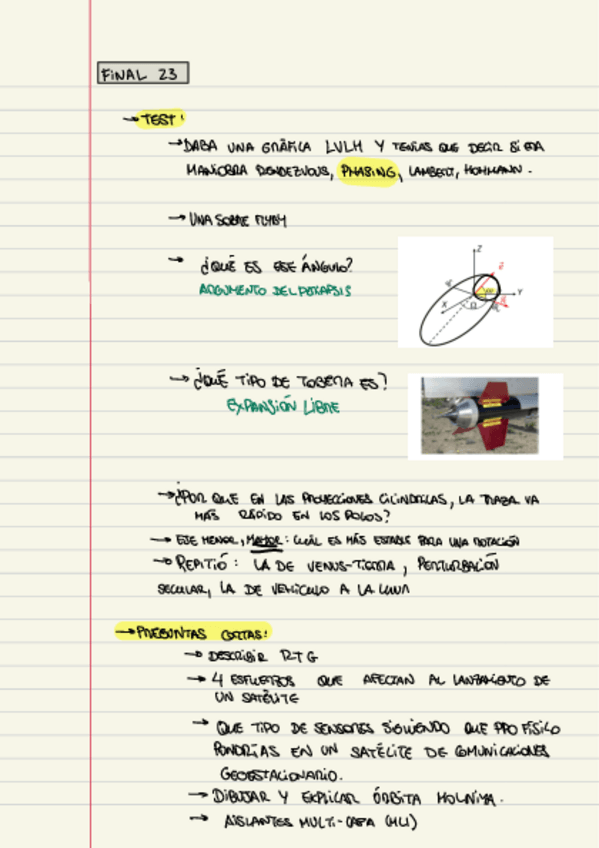 FINAL 23
→ TEST:
→ DABA UNA GRÁFICA LVLH Y TENÍAS QUE DECIR SI ERA
MANIOBRA RENDEZVOUS, PHASING, LAMBERT, HOHMANN.
→ UNA SOBRE FLYBY
→ ¿QUÉ ES ESE ÁNGULO?
ARGUMENTO DEL PERIAPSIS
Z
Y
X
Ω
→ ¿QUÉ TIPO DE TOBERA ES?
EXPANSIÓN LIBRE
→ ¿POR QUE EN LAS PROYECCIONES CILINDRICAS, LA TRAZA VA
MÁS RÁPIDO EN LOS POLOS?
→ EJE MENOR, MAYOR: CUÁL ES MÁS ESTABLE PARA UNA ROTACIÓN
→ REPITIÓ: LA DE VENUS-TIERRA, PERTURBACIÓN
SECULAR, LA DE VEHÍCULO A LA LUNA
→ PREGUNTAS CORTAS:
→ DESCRIBIR RTG
→ 4 ESFUERZOS QUE AFECTAN AL LANZAMIENTO DE
UN SATÉLITE
→ QUE TIPO DE SENSORES SIGUIENDO QUE PPO FÍSICO
PONDRÍAS EN UN SATÉLITE DE COMUNICACIONES
GEOESTACIONARIO.
→ DIBUJAR Y EXPLICAR ÓRBITA MOLNIYA.
→ AISLANTES MULTI-CAPA (MLI)